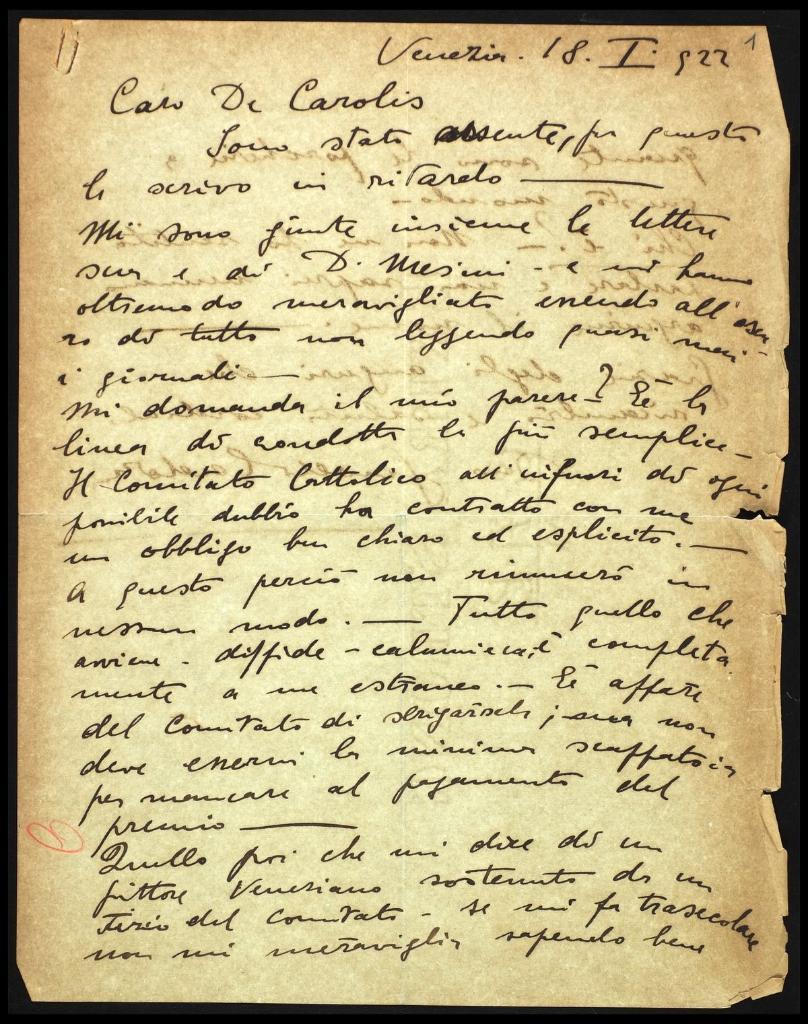 1
Venezia. 18. I. 922
Caro De Carolis
Sono stato assente, per questo
le scrivo in ritardo —
Mi sono giunte insieme le lettere
sua e di D. Mesini - e mi hanno
oltremodo meravigliato essendo all'oscu
ro di tutto non leggendo quasi mai
i giornali —
Mi domanda il mio parere? È la
linea di condotta la più semplice —
Il Comitato Cattolico all'infuori di ogni
possibile dubbio ha contratto con me
un obbligo ben chiaro ed esplicito. —
A questo perciò non rinuncerò in
nessun modo. — Tutto quello che
avviene - diffide - calunnie è completa
mente a me estraneo. — È affare
del Comitato di sbrigarsela; ma non
deve esservi la minima scappatoia
per mancare al pagamento del
premio —
Quello poi che mi dice di un
pittore Veneziano sostenuto da un
Tizio del Comitato - se mi fa trasecolare
non mi meraviglia sapendo bene